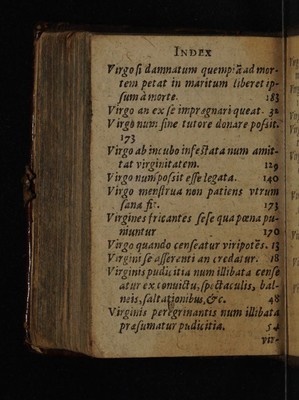 INDEX
Virgo si damnatum quempiã ad mor-
tem petat in maritum liberet ip-
sum à morte. 183
Virgo an ex se impregnari queat. 32
Virgo num sine tutore donare possit.
173
Virgo ab incubo infestata num amit-
tat virginitatem. 129
Virgo num possit esse legata. 140
Virgo menstrua non patiens vtrum
sana sit. 173
Virgines fricantes sese qua pœna pu-
niuntur 170
Virgo quando censeatur viripotẽs. 13
Virgini se asserenti an credatur. 18
Virginis pudicitia num illibata cense
atur ex conuictu, spectaculis, bal-
neis, saltationibus, &c. 48
Virginis peregrinantis num illibata
præsumatur pudicitia. 54
vir-